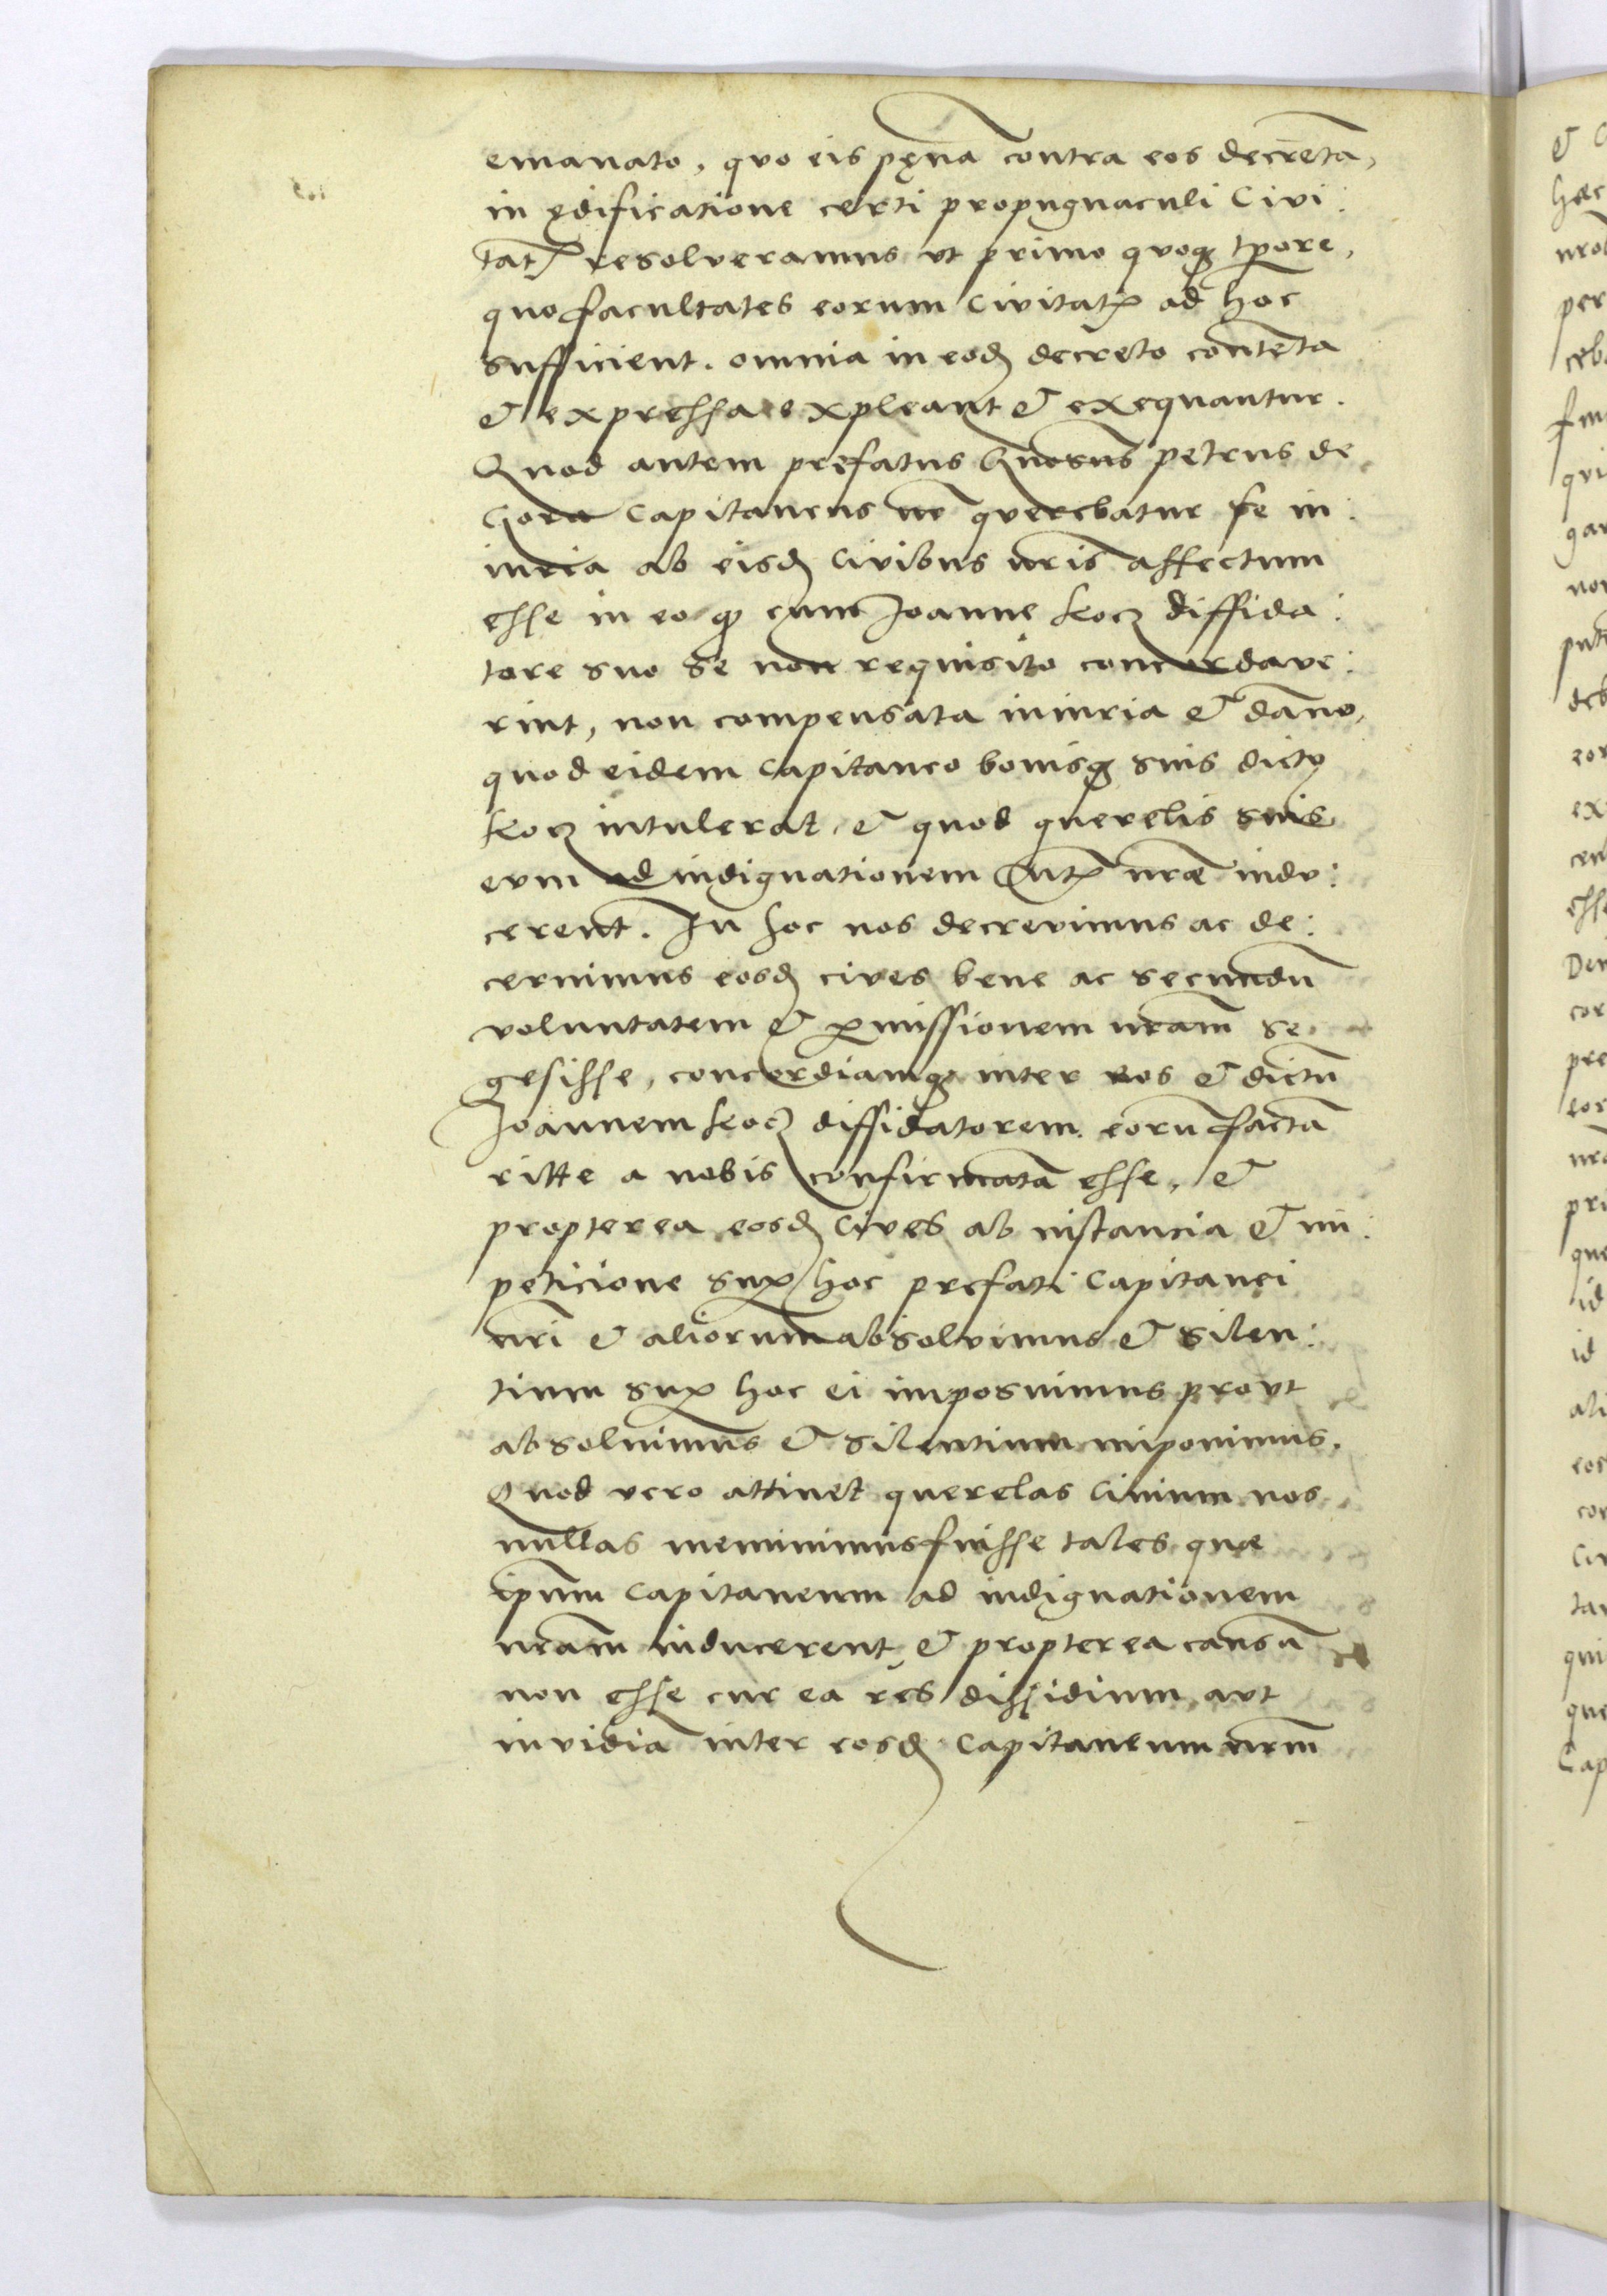 emanato, quo eis pęna contra eos decreta,
in ędificatione certi propugnaculi Civi:
tatꝭ resolveramus ut primo quoqꝫ tp̄ore,
quo facultates eorum Civitatꝭ ad hoc
sufficient. omnia in eodꝫ decreto contenta
& expressa expleant & exequantur.
Quod autem prefatus Gn̄osus petrus de
Gora Capitaneus nr̄ querebatur se in:
iuria ab eisdꝫ Civibus nr̄is affectum
esse in eo qꝫ cum Joanne Kocz diffida:
tore suo se non requisito concordave:
rint, non compensata iniuria & dāno,
quod eidem Capitaneo bonisqꝫ suis dictꝰ
Kocz intulerat, & quod querelis suis
eum ad indignationem nr̄ae indu:
cerent. In hoc nos decrevimus ac de:
cernimus eosdꝫ cives bene ac secundū
voluntatem & ꝑmissionem nr̄am se
gesisse, concordiamqꝫ inter eos & dictū
Joannem Kocz diffidatorem eorū factā
ritte a nobis confirmatā esse, &
propterea eosdꝫ Cives ab instancia & im:
peticione suꝑ hoc prefati Capitanei
nr̄i & aliorum absolvimus & silen:
tium suꝑ hoc ei imposuimus prout
absolvimus & silentium imponimus.
Quod vero attinet querelas Civium nos
nullas meminimus fuisse tales quae
ip̄um Capitaneum ad indignationem
nr̄am inducerent, & propterea causā
non esse cur ea res dissidium aut
invidiā inter eosdꝫ Capitaneum nr̄m